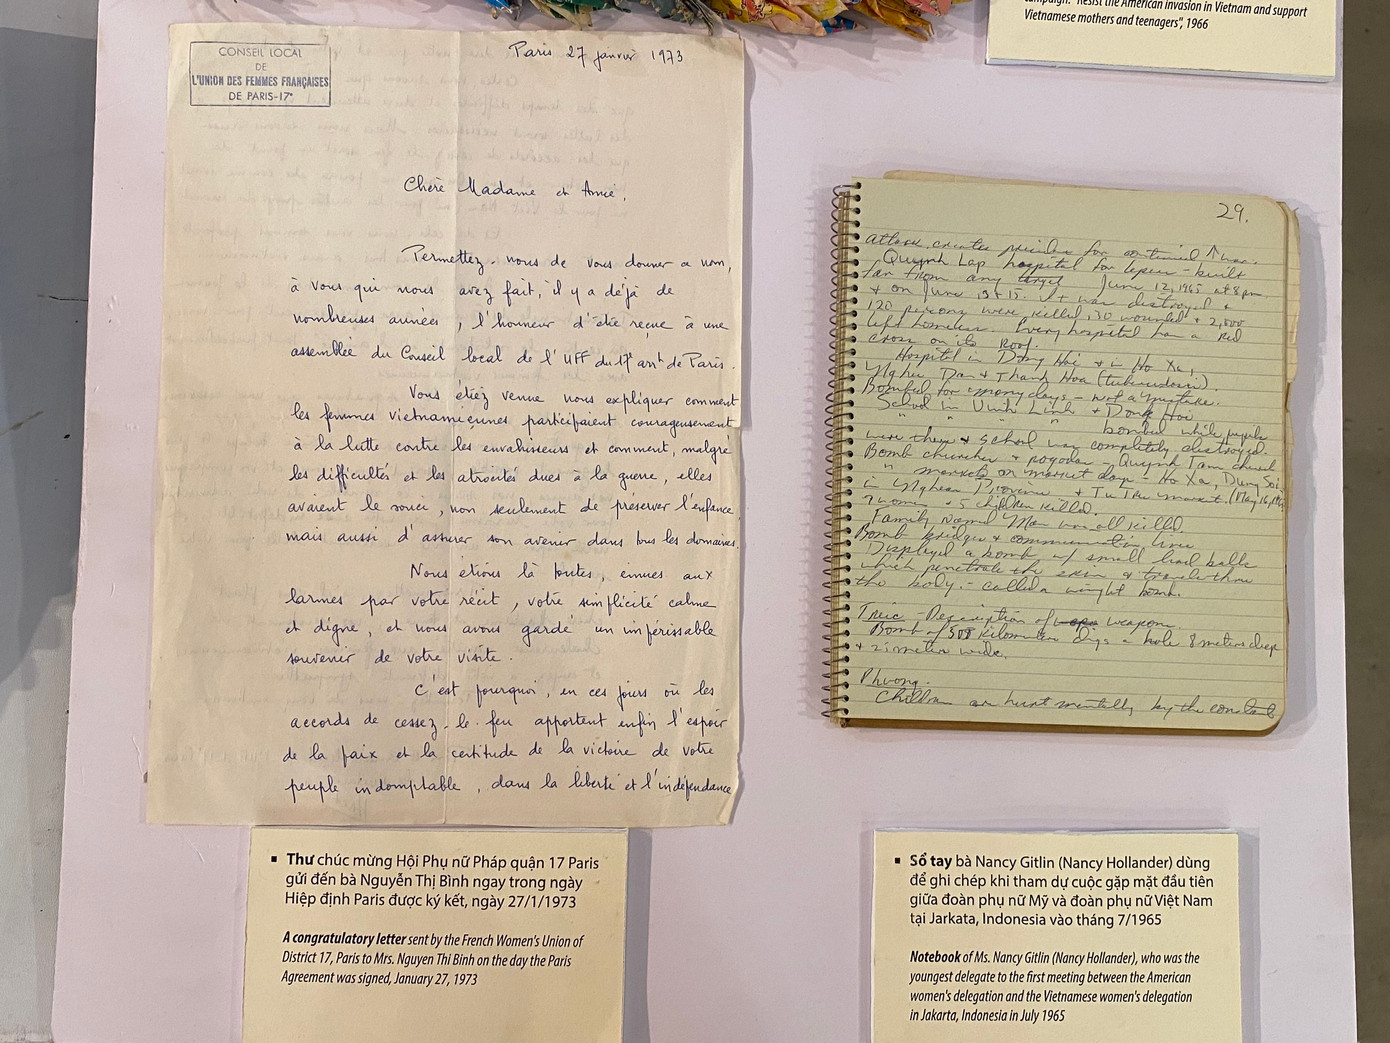 campaign: "Resist the American invasion in Vietnam and support
Vietnamese mothers and teenagers", 1966
CONSEIL LOCAL
DE
L'UNION DES FEMMES FRANÇAISES
DE PARIS-17e
Paris 27 janvier 1973
Chère Madame et Amie,
Permettez-nous de vous donner ce nom,
à vous qui nous avez fait, il y a déjà de
nombreuses années, l'honneur d'être reçue à une
assemblée du Conseil local de l'UFF du 17e arrt de Paris.
Vous étiez venue nous expliquer comment
les femmes vietnamiennes participaient courageusement
à la lutte contre les envahisseurs et comment, malgré
les difficultés et les atrocités dues à la guerre, elles
avaient le souci, non seulement de préserver l'enfance,
mais aussi d'assurer son avenir dans tous les domaines.
Nous étions là toutes, émues aux
larmes par votre récit, votre simplicité calme
et digne, et nous avons gardé un impérissable
souvenir de votre visite.
C'est pourquoi, en ces jours où les
accords de cessez-le-feu apportent enfin l'espoir
de la paix et la certitude de la victoire de votre
peuple indomptable, dans la liberté et l'indépendance
29.
attack, creates for continued ↑
Quynh Lap hospital for lepers - built
far from any target June 12, 1965 at 8 pm
+ on June 13 + 15. It was destroyed +
120 persons were killed, 30 wounded + 2,000
left homeless. Every hospital has a Red
cross on its roof.
Hospital in Dong Hoi + in Ho Xa,
Nghia Dan + Thanh Hoa (tuberculosis)
Bombed for many days - not a mistake.
School in Vinh Linh + Dong Hoi
" " " " bombed while pupils
were there + school was completely destroyed.
Bomb churches + pagodas - Quynh Tam church
" markets on market days - Ho Xa, Dung Soi
in Nghean Province + Tu Thu market. (May 16, 1965
9 women + 5 children killed.
Family named Man was all killed.
Bomb bridges + communication lines
Displayed a bomb w/ small lead balls
which penetrate the skin + travels thru
the body. - called a weight bomb.
- Description of weapons.
Bomb of 500 kilometers digs a hole 8 meters deep
+ 21 meters wide.
Phuong.
Children are hurt mentally by the constant
▪ Thư chúc mừng Hội Phụ nữ Pháp quận 17 Paris
gửi đến bà Nguyễn Thị Bình ngay trong ngày
Hiệp định Paris được ký kết, ngày 27/1/1973
A congratulatory letter sent by the French Women's Union of
District 17, Paris to Mrs. Nguyen Thi Binh on the day the Paris
Agreement was signed, January 27, 1973
▪ Sổ tay bà Nancy Gitlin (Nancy Hollander) dùng
để ghi chép khi tham dự cuộc gặp mặt đầu tiên
giữa đoàn phụ nữ Mỹ và đoàn phụ nữ Việt Nam
tại Jarkata, Indonesia vào tháng 7/1965
Notebook of Ms. Nancy Gitlin (Nancy Hollander), who was the
youngest delegate to the first meeting between the American
women's delegation and the Vietnamese women's delegation
in Jakarta, Indonesia in July 1965